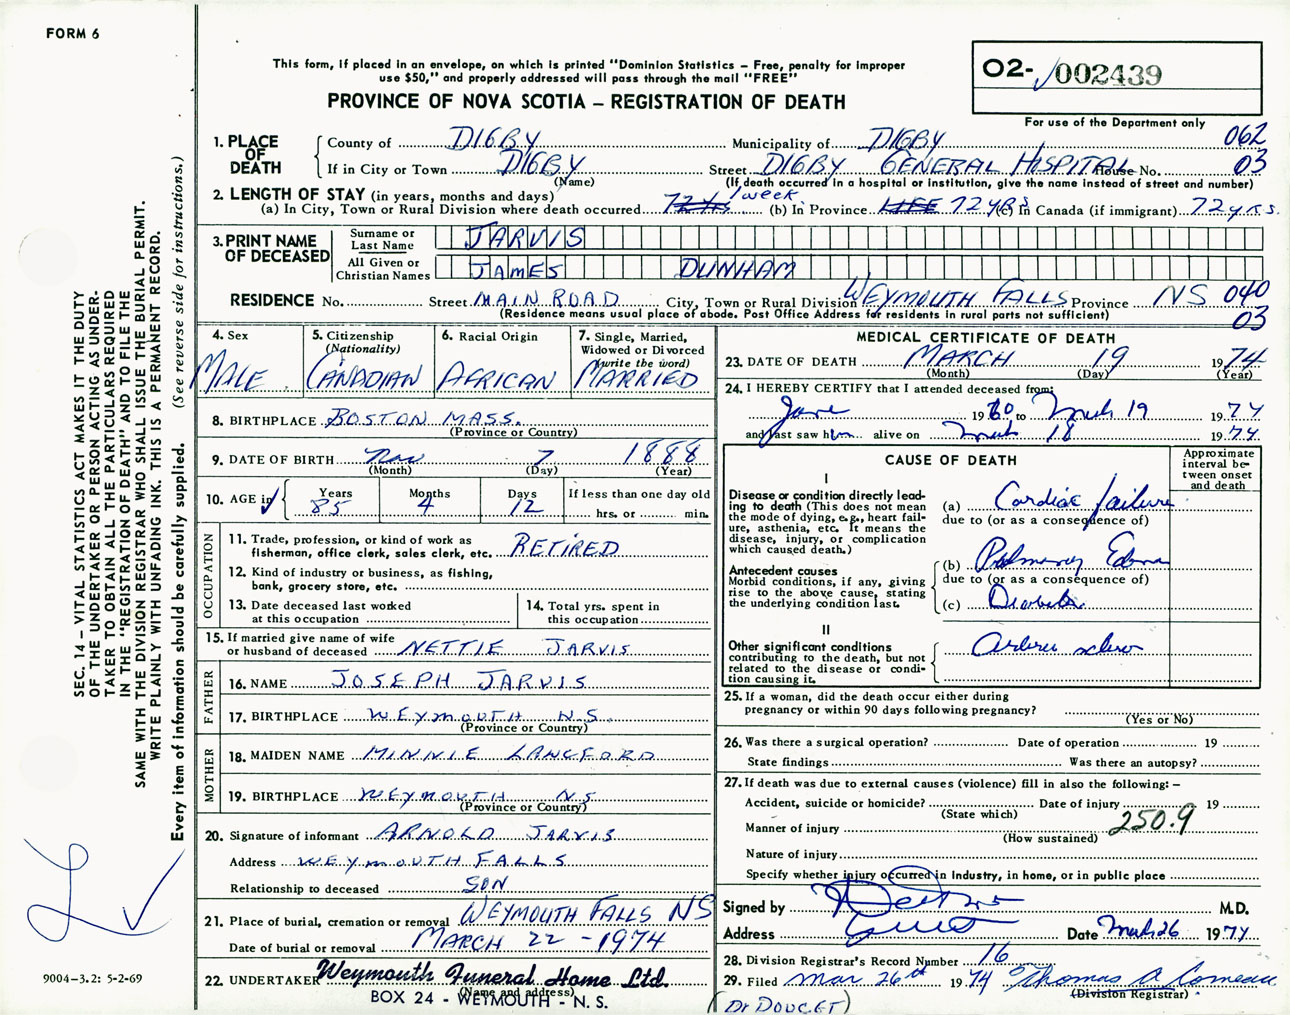 FORM 6
This form, if placed in an envelope, on which is printed "Dominion Statistics – Free, penalty for improper
use $50," and properly addressed will pass through the mail "FREE"
PROVINCE OF NOVA SCOTIA – REGISTRATION OF DEATH
O2- 002439
For use of the Department only
SEC. 14 – VITAL STATISTICS ACT MAKES IT THE DUTY
OF THE UNDERTAKER OR PERSON ACTING AS UNDER-
TAKER TO OBTAIN ALL THE PARTICULARS REQUIRED
IN THE "REGISTRATION OF DEATH" AND TO FILE THE
SAME WITH THE DIVISION REGISTRAR WHO SHALL ISSUE THE BURIAL PERMIT.
WRITE PLAINLY WITH UNFADING INK. THIS IS A PERMANENT RECORD.
Every item of information should be carefully supplied. (See reverse side for instructions.)
1. PLACE OF DEATH
County of DIGBY Municipality of DIGBY 062
If in City or Town DIGBY Street DIGBY GENERAL HOSPITAL House No. 03
(Name) (If death occurred in a hospital or institution, give the name instead of street and number)
2. LENGTH OF STAY (in years, months and days)
(a) In City, Town or Rural Division where death occurred 72 yrs 1 week. (b) In Province LIFE 72 YRS (c) In Canada (if immigrant) 72 yrs.
3. PRINT NAME OF DECEASED
Surname or Last Name JARVIS
All Given or Christian Names JAMES DUNHAM
RESIDENCE No. Street MAIN ROAD City, Town or Rural Division WEYMOUTH FALLS Province NS 040
(Residence means usual place of abode. Post Office Address for residents in rural parts not sufficient) 03
4. Sex MALE
5. Citizenship (Nationality) CANADIAN
6. Racial Origin AFRICAN
7. Single, Married, Widowed or Divorced (write the word) MARRIED
8. BIRTHPLACE BOSTON MASS.
(Province or Country)
9. DATE OF BIRTH Nov 7 1888
(Month) (Day) (Year)
10. AGE in Years 85 Months 4 Days 12 If less than one day old hrs. or min.
OCCUPATION
11. Trade, profession, or kind of work as fisherman, office clerk, sales clerk, etc. RETIRED
12. Kind of industry or business, as fishing, bank, grocery store, etc.
13. Date deceased last worked at this occupation
14. Total yrs. spent in this occupation
15. If married give name of wife or husband of deceased NETTIE JARVIS
FATHER
16. NAME JOSEPH JARVIS
17. BIRTHPLACE WEYMOUTH N.S.
(Province or Country)
MOTHER
18. MAIDEN NAME MINNIE LANGFORD
19. BIRTHPLACE WEYMOUTH NS
(Province or Country)
20. Signature of informant ARNOLD JARVIS
Address WEYMOUTH FALLS
Relationship to deceased SON
21. Place of burial, cremation or removal WEYMOUTH FALLS NS
Date of burial or removal MARCH 22 – 1974
22. UNDERTAKER Weymouth Funeral Home Ltd.
(Name and address)
BOX 24 - WEYMOUTH - N. S.
MEDICAL CERTIFICATE OF DEATH
23. DATE OF DEATH MARCH 19 1974
(Month) (Day) (Year)
24. I HEREBY CERTIFY that I attended deceased from:
June 1960 to March 19 1974
and last saw him alive on March 18 1974
CAUSE OF DEATH
Approximate interval between onset and death
I
Disease or condition directly leading to death (This does not mean the mode of dying, e.g., heart failure, asthenia, etc. It means the disease, injury, or complication which caused death.)
(a) Cardiac failure
due to (or as a consequence of)
Antecedent causes
Morbid conditions, if any, giving rise to the above cause, stating the underlying condition last.
(b) Pulmonary Edema
due to (or as a consequence of)
(c) Diabetes
II
Other significant conditions
contributing to the death, but not related to the disease or condition causing it.
25. If a woman, did the death occur either during pregnancy or within 90 days following pregnancy?
(Yes or No)
26. Was there a surgical operation? Date of operation 19
State findings Was there an autopsy?
27. If death was due to external causes (violence) fill in also the following: –
Accident, suicide or homicide? Date of injury 19
(State which)
Manner of injury 250.9
(How sustained)
Nature of injury
Specify whether injury occurred in Industry, in home, or in public place
Signed by M.D.
Address Date March 26 1974
28. Division Registrar's Record Number 16
29. Filed Mar 26th 1974 Thomas A Comeau
(Division Registrar)
(Dr DOUCET)
9004–3.2: 5-2-69